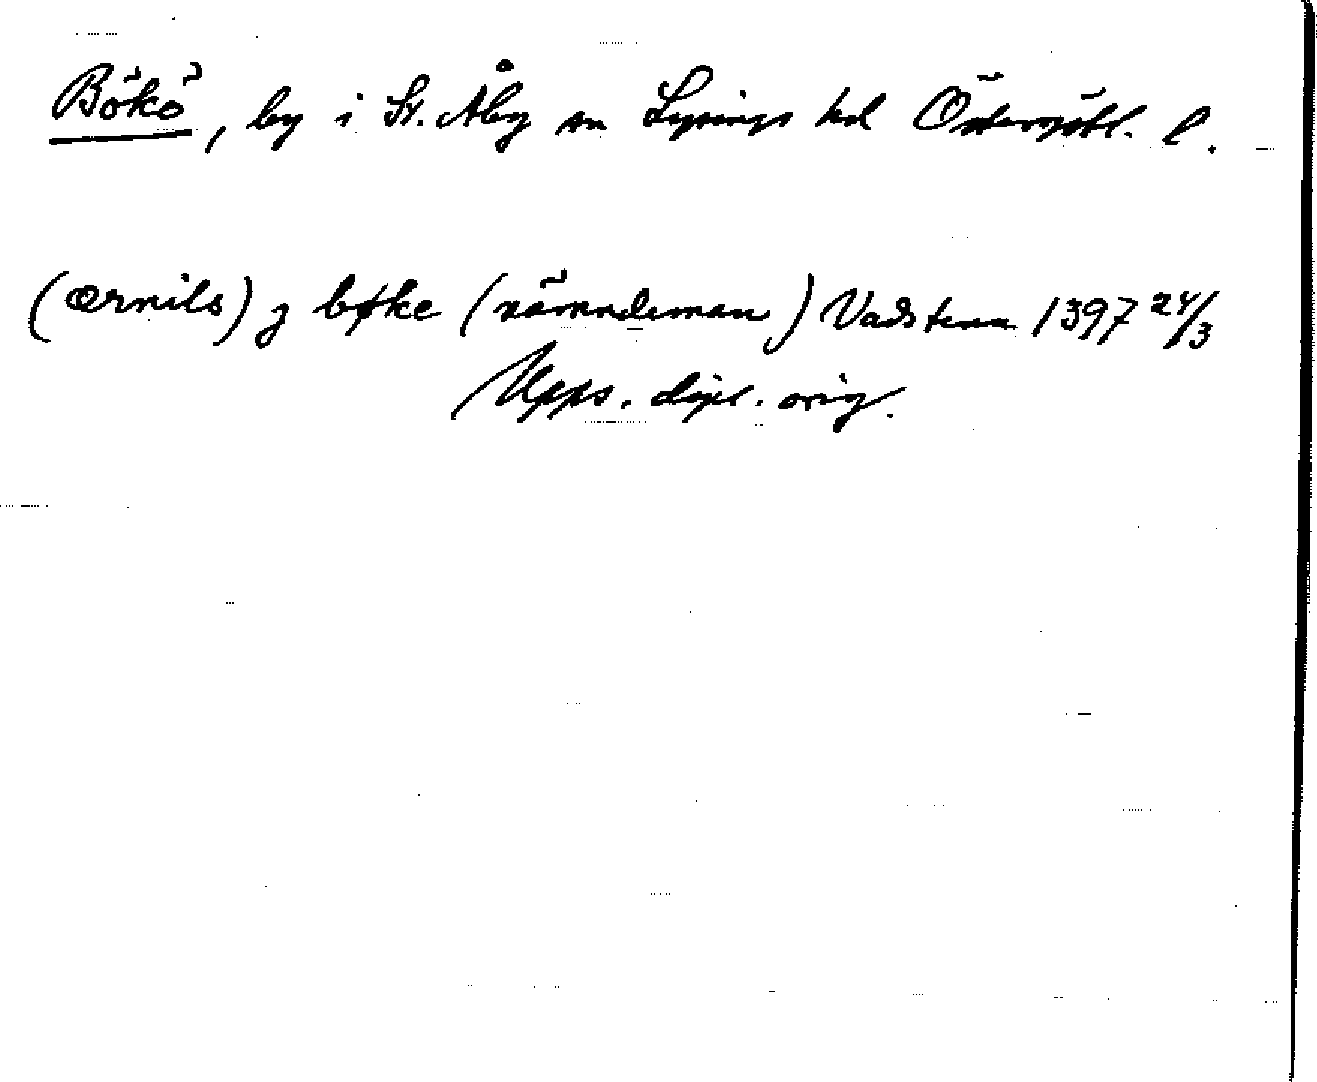 Bökö, by i St. Åby sn Lysings hd Östergötl. l.
(ærnils) j bøke (nämndeman) Vadstena 1397 24/3
Upps. dipl. orig.